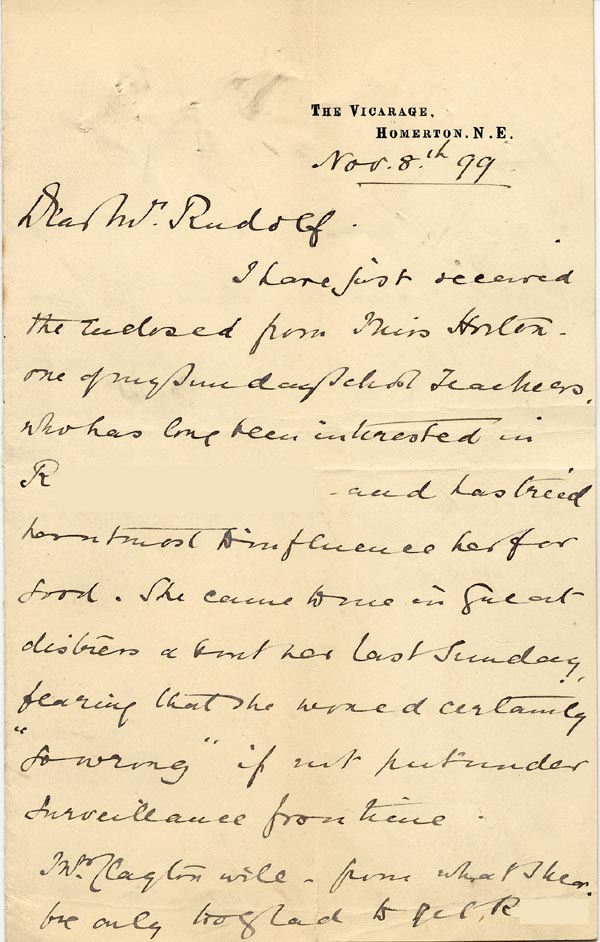 THE VICARAGE,
HOMERTON. N.E.
Nov. 8.th 99
Dear Mr. Rudolf.
I have just received
the enclosed from Miss Horton -
one of my Sunday School Teachers,
who has long been interested in
R - and has tried
her utmost to influence her for
good. She came to me in great
distress about her last Sunday,
fearing that she would certainly
"go wrong" if not put under
surveillance for a time.
Mrs. Clayton will - from what I hear.
be only too glad to get R